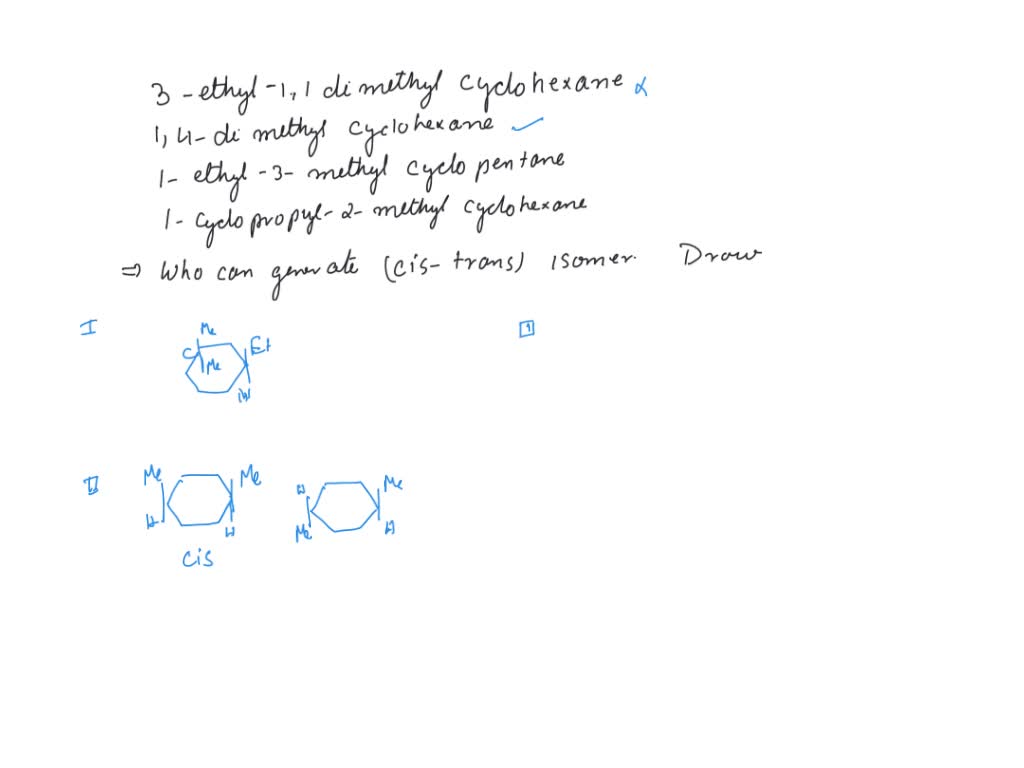 3-ethyl-1,1 dimethyl cyclohexane x
1,4-di methyl cyclohexane ✓
1- ethyl-3- methyl cyclo pentane
1- cyclopropyl-2-methyl cyclohexane
⇒ Who can generate (cis-trans) isomer. Draw
I
Me
C
Me
Et
H
II
Me
Me
H
H
cis
H
Me
Me
H